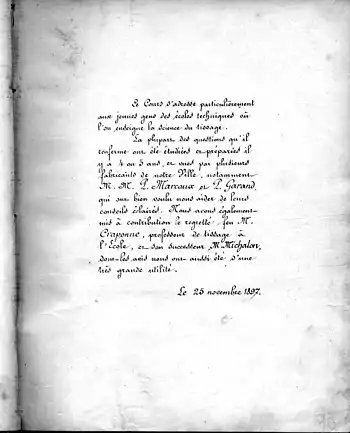 Ce Cours s'adresse particulièrement
aux jeunes gens des écoles techniques où
l'on enseigne la science du tissage.
La plupart des questions qu'il
renferme ont été étudiées et préparées il
y a 4 ou 5 ans, et vues par plusieurs
fabricants de notre Ville, notamment
M. M. P. Marcoux et P. Garand,
qui ont bien voulu nous aider de leurs
conseils éclairés. Nous avons également
mis à contribution le regretté Jean M.
Craponne, professeur de tissage à
l'école, et son successeur, M. Michalon,
dont les avis nous ont aussi été d'une
très grande utilité.
Le 25 novembre 1897.